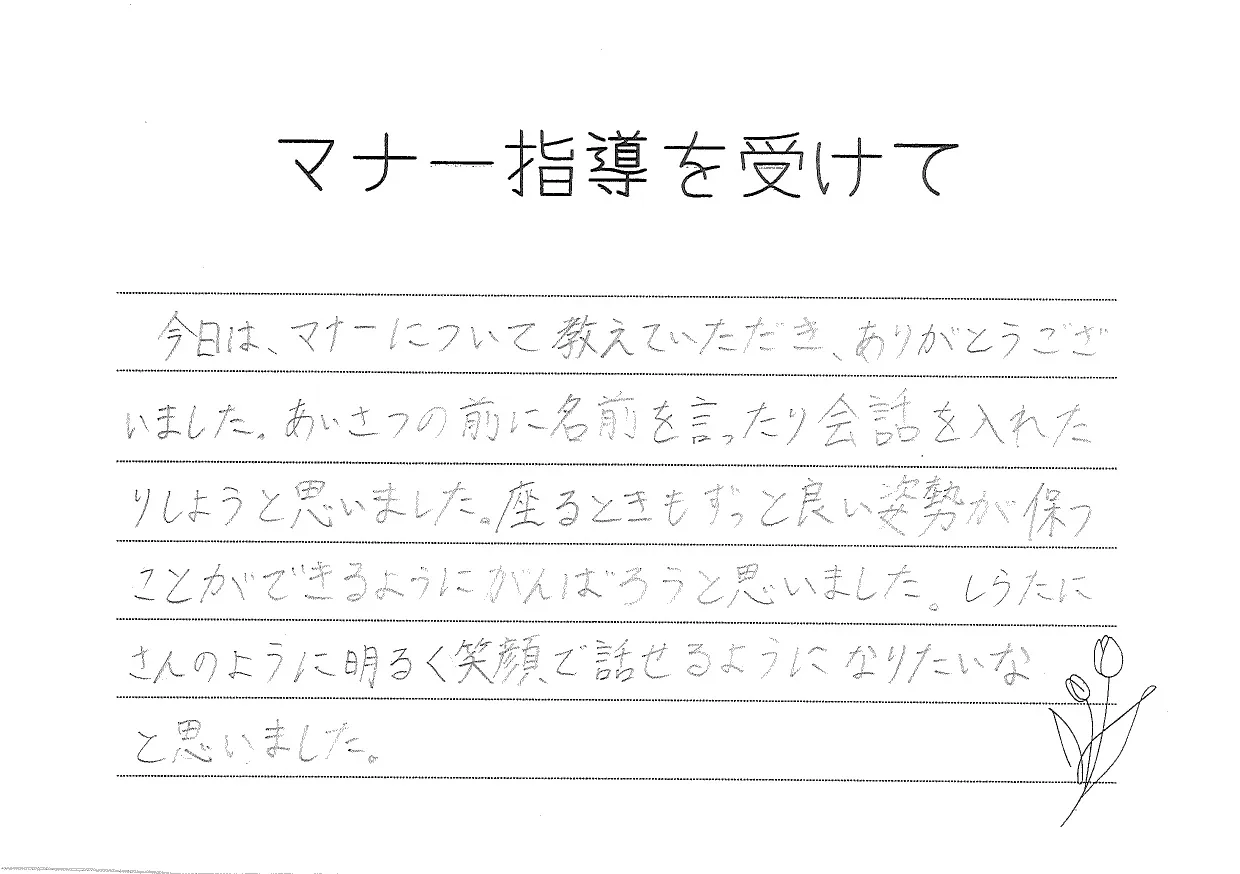 マナー指導を受けて
今日は、マナーについて教えていただき、ありがとうござ
いました。あいさつの前に名前を言ったり会話を入れた
りしようと思いました。座るときもずっと良い姿勢が保つ
ことができるようにがんばろうと思いました。しらたに
さんのように明るく笑顔で話せるようになりたいな
と思いました。